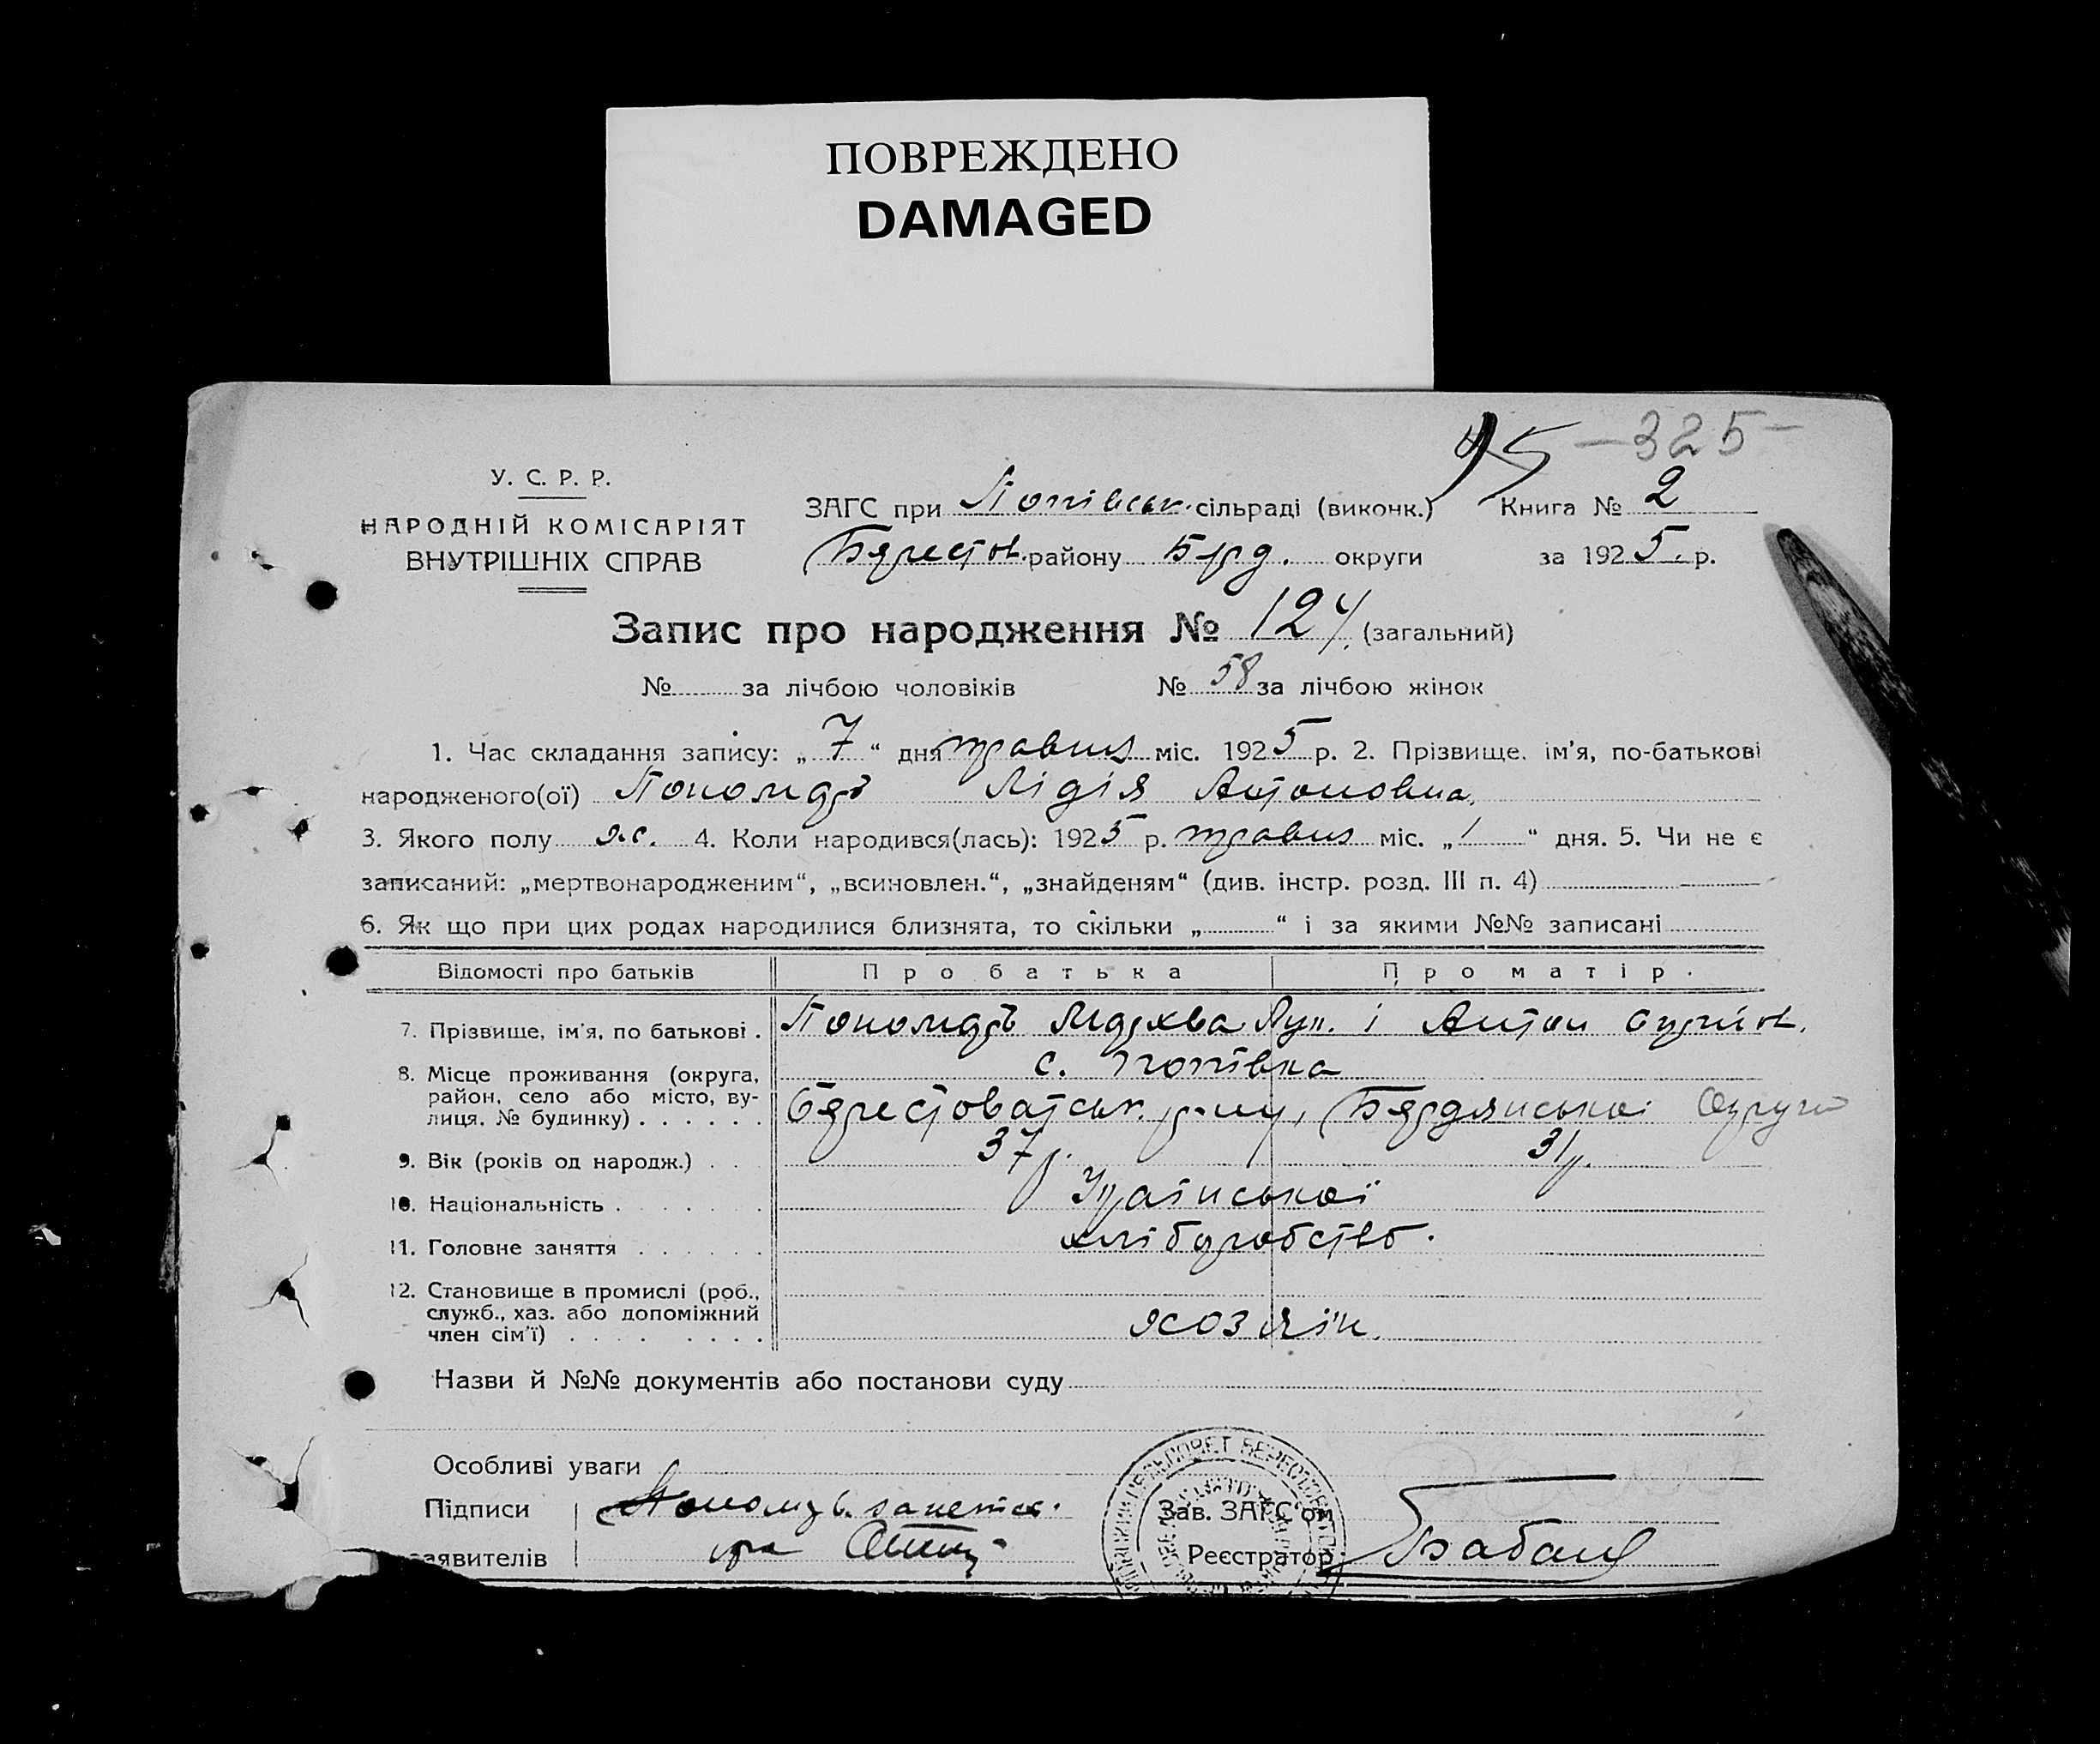 ПОВРЕЖДЕНО
DAMAGED
95 -325-
У. С. Р. Р.
НАРОДНІЙ КОМІСАРІЯТ
ВНУТРІШНІХ СПРАВ
ЗАГС при Попівськ. сільраді (виконк.) Книга № 2
району округи за 1925 р.
Запис про народження № 124. (загальний)
№ за лічбою чоловіків № 58 за лічбою жінок
1. Час складання запису: „ 7 “ дня травня міс. 1925 р. 2. Прізвище, ім’я, по-батькові
народженого(ої) Лідія Антоновна.
3. Якого полу ж. 4. Коли народився(лась): 1925 р. травня міс. „ 1 “ дня. 5. Чи не є
записаний: „мертвонародженим“, „всиновлен.“, „знайденям“ (див. інстр. розд. III п. 4)
6. Як що при цих родах народилися близнята, то скільки „ “ і за якими №№ записані
Відомості про батьків Про батька Про матір.
7. Прізвище, ім’я, по батькові . і Антон
8. Місце проживання (округа, с. Попівка
район, село або місто, ву-
лиця. № будинку) . . . . . . Бердянської Округи
9. Вік (років од народж.) . . 37 р. 31 р.
10. Національність . . . . . . . Української
11. Головне заняття . . . . . . хліборобство.
12. Становище в промислі (роб.,
служб., хаз. або допоміжний
член сім’ї) . . . . . . . . хозяїн.
Назви й №№ документів або постанови суду
Особливі уваги
Підписи Зав. ЗАГС’ом
заявителів Реєстратор